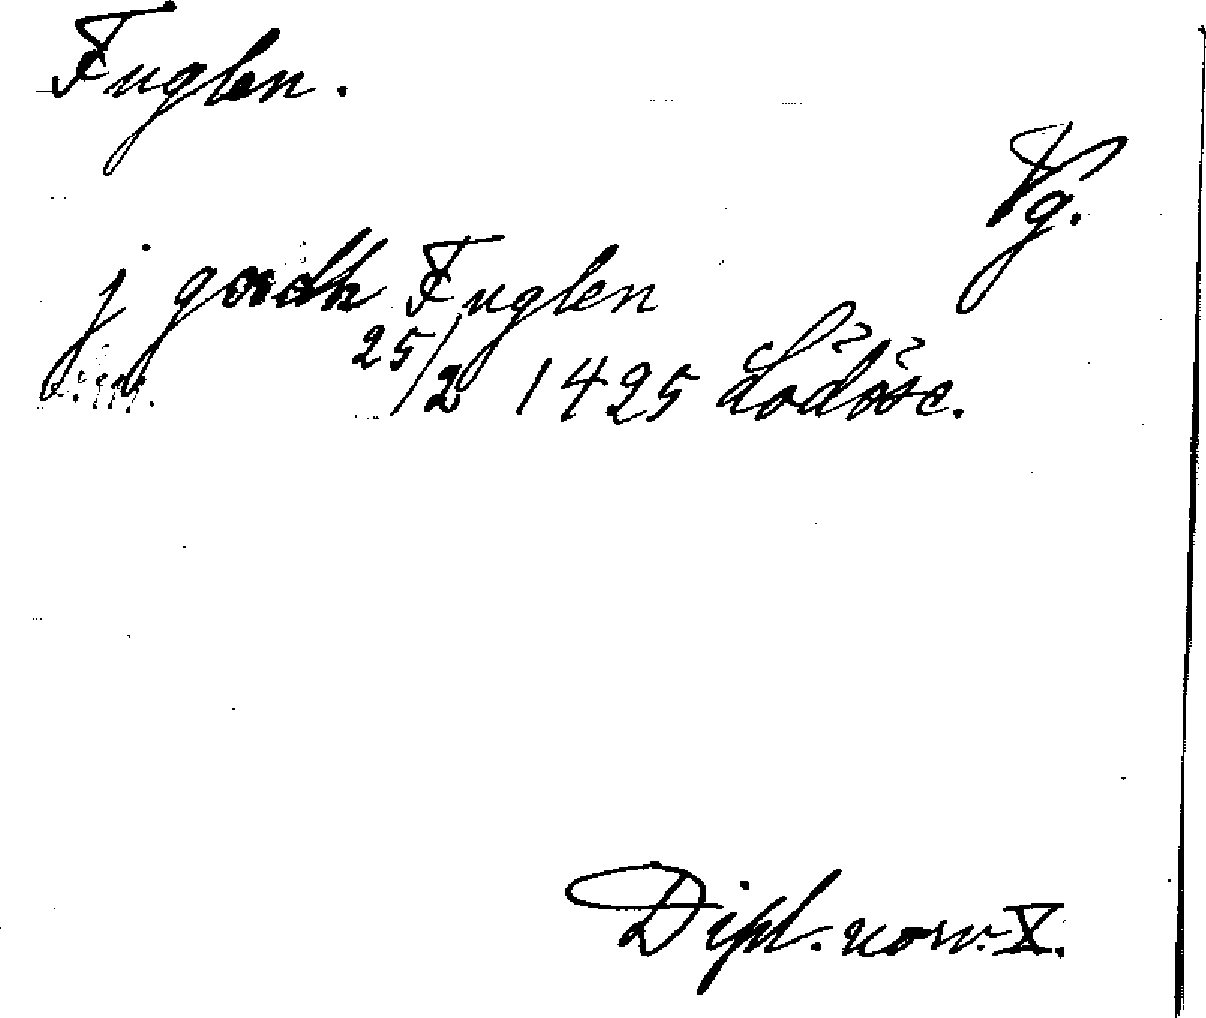 Fuglen.
Vg.
j goodh Fuglen
25/2 1425 Lödöse.
Dipl. norv. X.